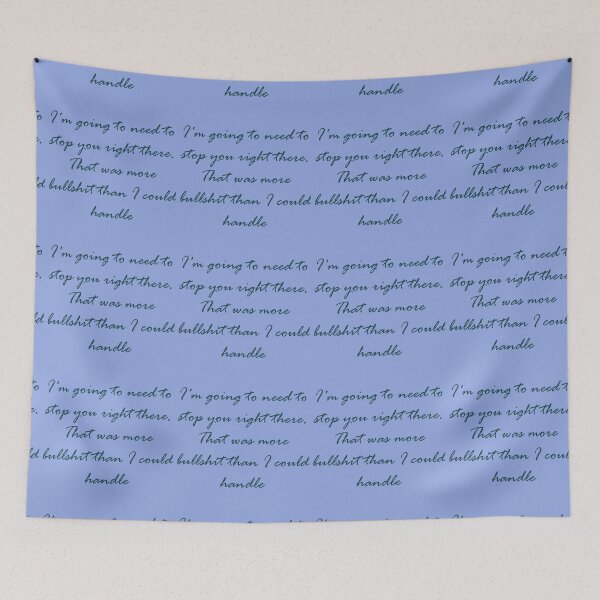 handle handle handle handle
to I'm going to need to I'm going to need to I'm going to need to I'm going to need t
e. stop you right there. stop you right there. stop you right there. stop you right there
That was more That was more That was more That was more
ld bullshit than I could bullshit than I could bullshit than I could bullshit than I coul
handle handle handle handle
to I'm going to need to I'm going to need to I'm going to need to I'm going to need t
e. stop you right there. stop you right there. stop you right there. stop you right there
That was more That was more That was more That was more
ld bullshit than I could bullshit than I could bullshit than I could bullshit than I coul
handle handle handle handle
to I'm going to need to I'm going to need to I'm going to need to I'm going to need t
e. stop you right there. stop you right there. stop you right there. stop you right there
That was more That was more That was more That was more
ld bullshit than I could bullshit than I could bullshit than I could bullshit than I coul
handle handle handle handle